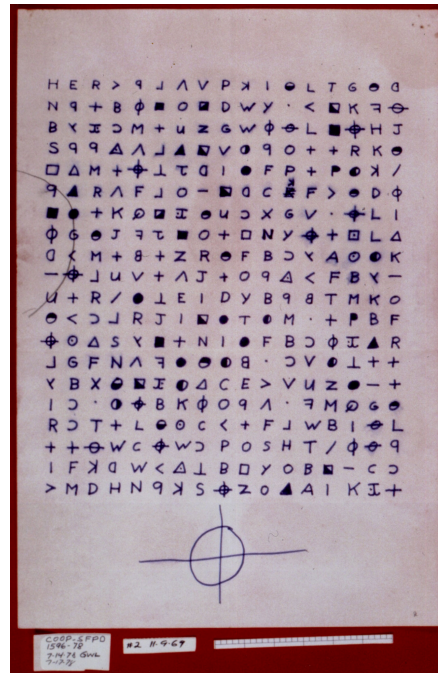 H E R > ꟼ ⅃ Λ V P ꓘ I ◒ L T G ◓ ᗡ
N ꟼ + B ϕ ■ O ◪ D W Y · < ◩ K ꟻ ⊖
B Y Ɪ Ɔ M + U Z G W ϕ ⊖ L ■ ⌖ H J
S ꟼ ꟼ △ Λ ⅃ ▲ ◩ V ◑ ꟼ O + + R K ◓
□ △ M + ⌖ ⊥ τ ᗡ I ● F P + P ◐ ꓘ /
ꟼ ▲ R Λ F ⅃ O - ◩ ᗡ C ꓘ F > ◓ D ϕ
■ ● + K Ø ◪ Ɪ ◓ U Ɔ X G V · ⌖ L I
ϕ G ◓ J ꟻ τ ■ O + □ N Y ⌖ + ⊡ L △
ᗡ < M + 8 + Z R ◓ F B Ɔ Y A ⊙ ◐ K
- ⌖ ⅃ U V + Λ J + O ꟼ △ < F B Y -
U + R / ● ⊥ E I D Y B ꟼ 8 T M K O
◓ < Ɔ ⅃ R J I ◩ ● T ◐ M · + P B F
⌖ ⊙ △ S Y ■ + N I ● F B Ɔ ϕ Ɪ ▲ R
⅃ G F N Λ ꟻ ● ◓ ◐ 8 · Ɔ V ◐ ⊥ + +
Y B X ◒ ◩ Ɪ ◐ △ C E > V U Z ● - +
I Ɔ · ◑ ⌖ B K ϕ O ꟼ Λ · ꟻ M Ø G ◓
R Ɔ T + L ◒ ⊙ C < + F ⅃ W B I ⊖ L
+ + ⊖ W C ⌖ W Ɔ P O S H T / ϕ ⊖ ꟼ
I F ꓘ ᗡ W < △ ⊥ B □ Y O B ◩ - C Ɔ
> M D H N ꟼ ꓘ S ⌖ Z O ▲ A I K Ɪ +
COOP-SFPD
1596-78
7-14-78 GWL
7-17-78
#2 11-9-69